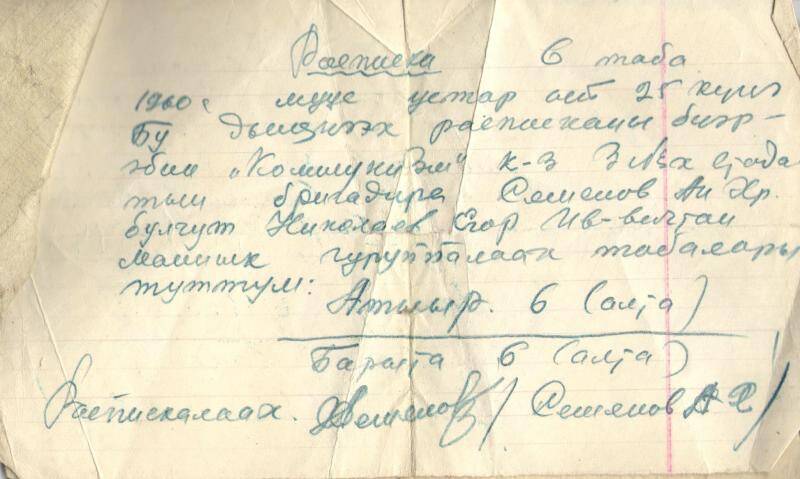 Расписка 6 таба
1960 с муус устар ыйт 25 күнэ
Бу дьиҥнээх расписканы биэр-
эбин „Коммунизм" к-з 3 №х стада
тын бригадира Семенов Ан Хр.
булчут Николаев Егор Ив-вичтан
маннык гуруппалаах табалары
туттум:
Атыыр. 6 (алта)
Барыта 6 (алта)
Распискалаах. Семенов / Семенов А Х /